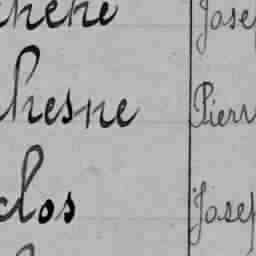 chene Josep
chesne Pierr
clos Josep